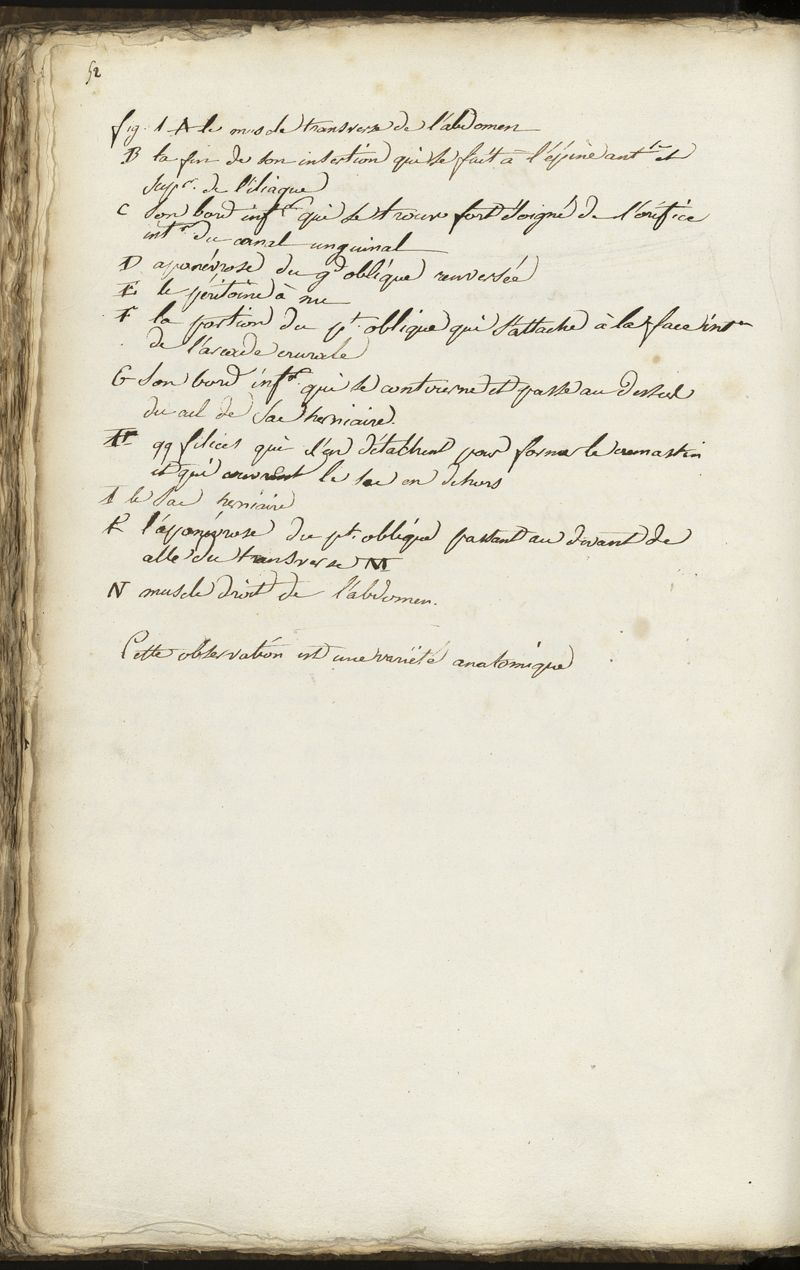 52
fig. 1 A le muscle transverse de l'abdomen
B la fin de son insertion qui se fait à l'épine antre et
supr. de l'iliaque
C son bord infr qui se trouve fort éloigné de l'orifice
intr. du canal inguinal
D aponévrose du gd oblique renversée
E le péritoine à nu
F la portion du pt. oblique qui s'attache à la face intre
de l'arcade crurale
G son bord infr. qui se contourne et passe au dessus
du col de sac herniaire.
H qq filices qui s'en détachent pour former le cremastin
et qui couvrent le sac en dehors
I le sac herniaire
K l'aponévrose du pt. oblique passant au devant de
celle du transverse M
N muscle droit de l'abdomen.
Cette observation est une variété anatomique